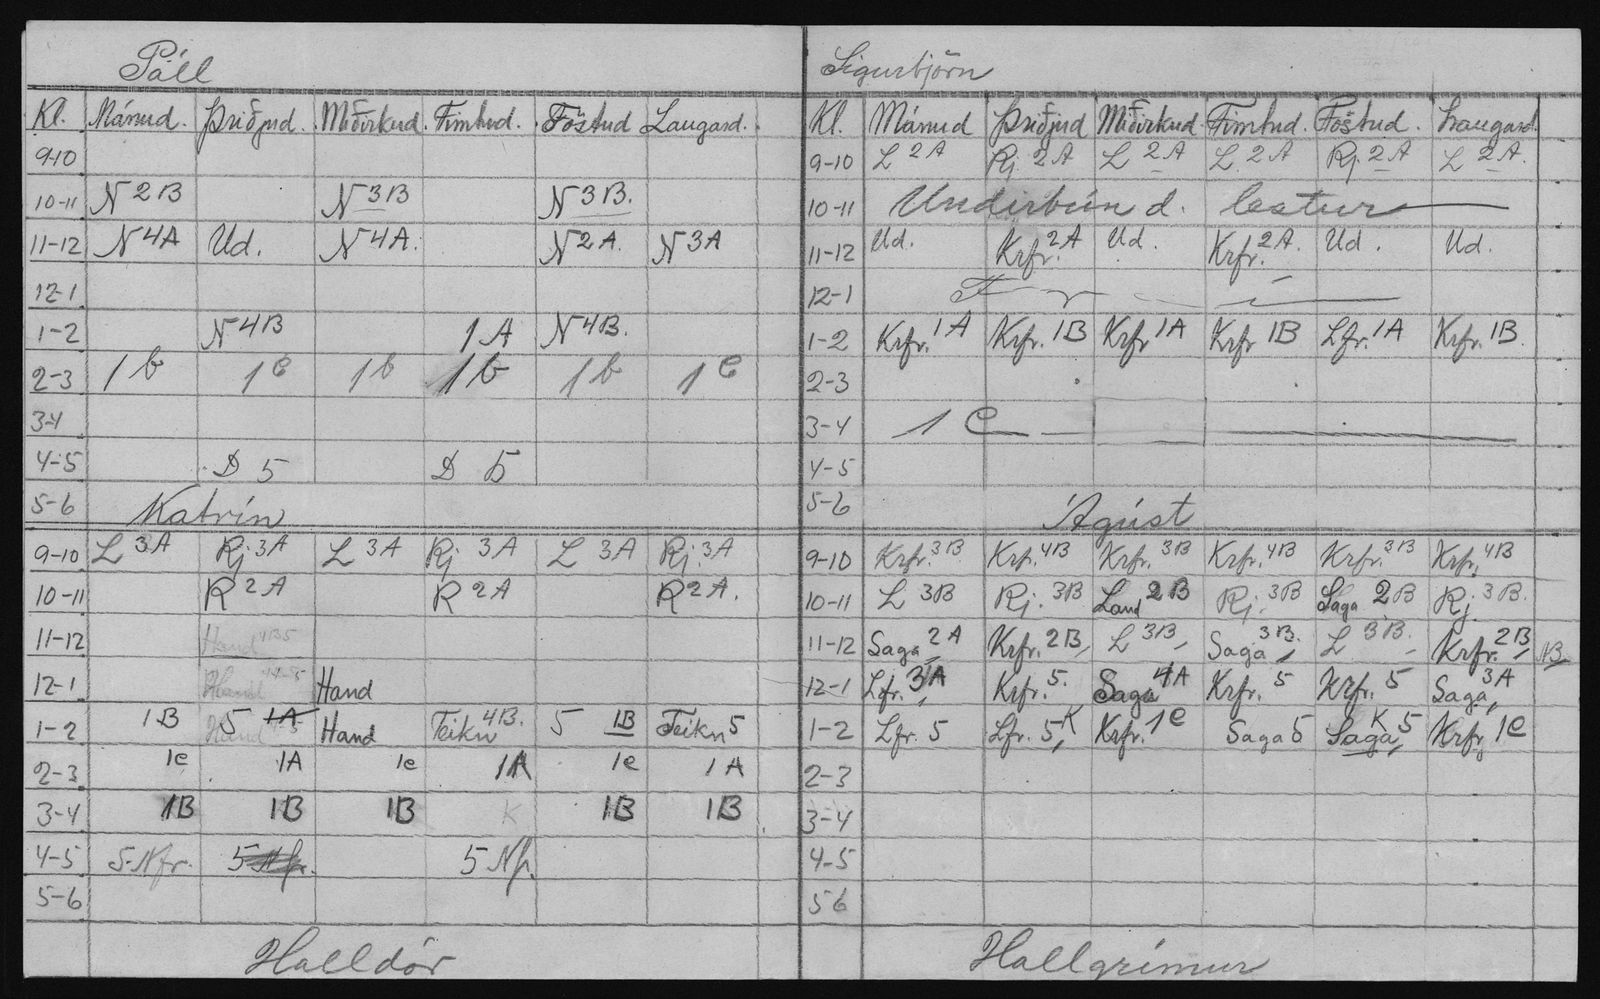 Páll
Kl. Mánud. Þriðjud. Miðvikud. Fimtud. Föstud Laugard.
9-10
10-11 N 2B N 3B N 3B.
11-12 N 4A Ud. N 4A. N 2A. N 3A
12-1
1-2 N 4B 1A N 4B.
2-3 1b 1c 1b 1b 1b 1c
3-4
4-5 D 5 D 5
5-6
Katrín
9-10 L 3A Rj 3A L 3A Rj 3A L 3A Rj 3A
10-11 R 2A R 2A R 2A.
11-12 Hand
12-1 Hand Hand
1-2 1B 5 1A Hand Hand Teikn 4B. 5 1B Teikn 5
2-3 1c 1A 1c 1A 1c 1A
3-4 1B 1B 1B K 1B 1B
4-5 5 Nfr. 5 Nfr. 5 Nfr.
5-6
Halldór
Sigurbjörn
Kl. Mánud Þriðjud Miðvikud. Fimtud. Föstud. Laugard.
9-10 L 2A Rj. 2A L 2A L. 2A Rj. 2A L 2A.
10-11 Undirbúnd. lestur
11-12 Ud. Krfr. 2A Ud. Krfr. 2A. Ud. Ud.
12-1 F r í
1-2 Krfr. 1A Krfr. 1B Krfr 1A Krfr 1B Lfr. 1A Krfr. 1B.
2-3
3-4 1 C
4-5
5-6
Ágúst
9-10 Krfr. 3B Krfr. 4B Krfr. 3B Krfr. 4B Krfr. 3B Krfr. 4B
10-11 L 3B Rj. 3B Land 2B Rj. 3B Saga 2B Rj. 3B.
11-12 Saga 2A Krfr. 2B, L 3B, Saga 3B. L 3B. Krfr. 2B, NB
12-1 Lfr. 3A Krfr. 5. Saga 4A Krfr. 5 Krfr. 5 Saga 3A
1-2 Lfr. 5 Lfr. 5, K Krfr. 1c Saga 5 Saga K 5 Krfr 1c
2-3
3-4
4-5
5 6
Hallgrímur